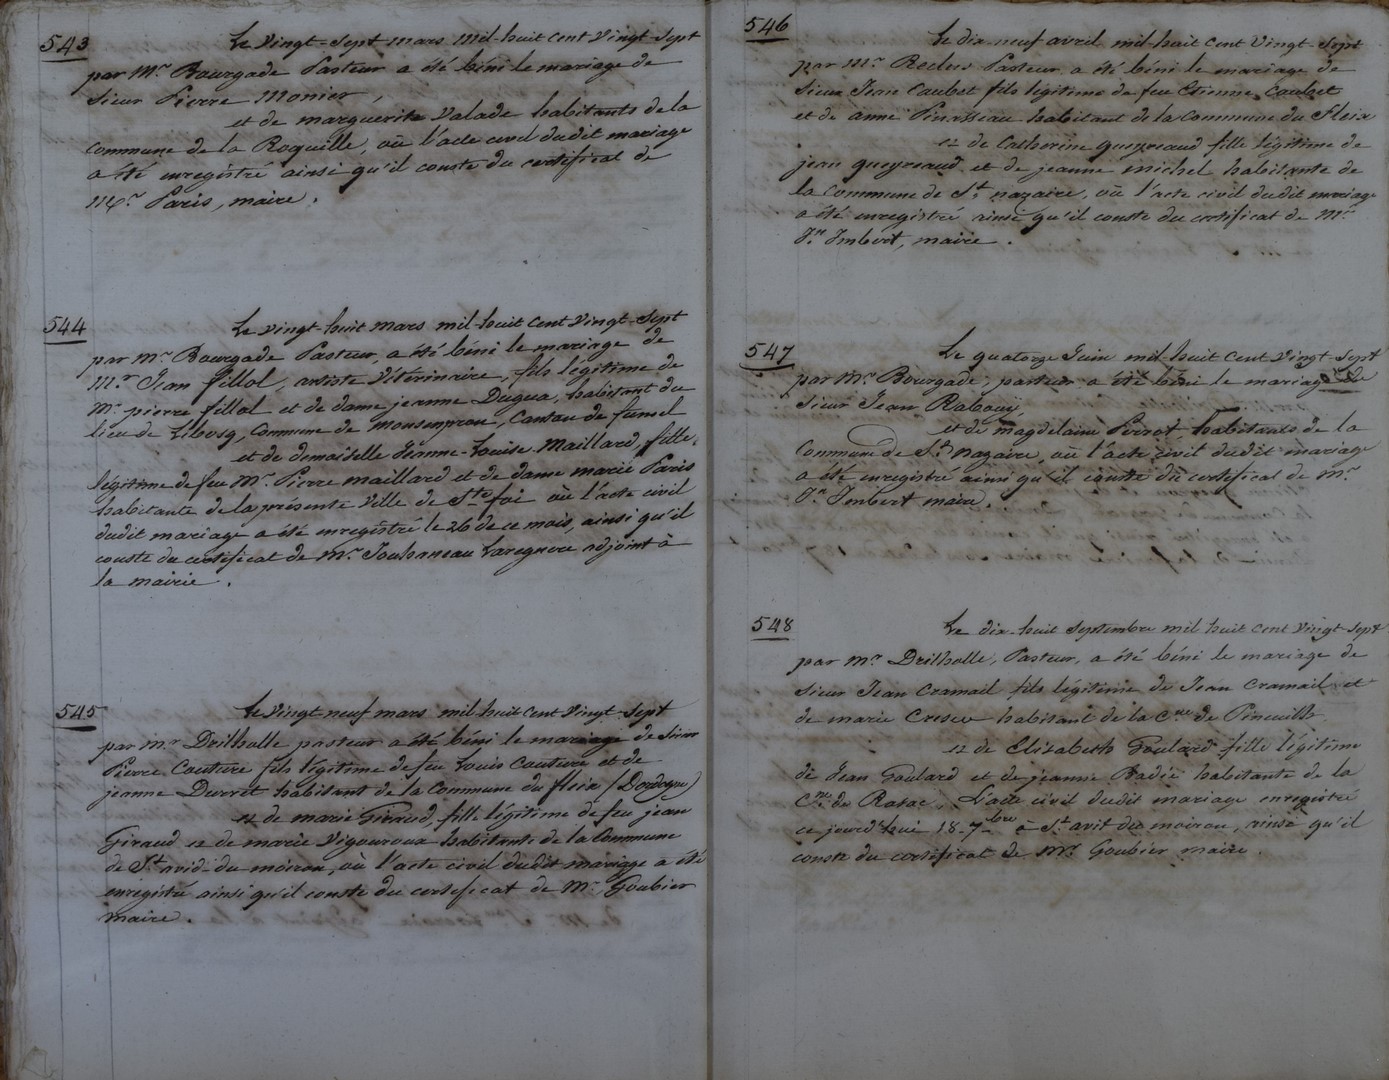 543
Le vingt-sept mars mil-huit cent vingt-sept
par Mr. Bourgade Pasteur a été béni le mariage de
Sieur Pierre Monier,
et de marguerite Valade habitants de la
commune de la Roquille, où l'acte civil dudit mariage
a été enregistré ainsi qu'il conste du certificat de
Mr. Paris, maire.
544
Le vingt-huit mars mil-huit cent vingt-sept
par mr. Bourgade Pasteur, a été béni le mariage de
Mr. Jean fillol, artiste vétérinaire, fils légitime de
Mr. pierre fillol et de dame jeanne Dugua, habitant du
lieu de Libosq, commune de Monsempron, Canton de fumel
et de demoiselle Jeanne-Louise Maillard, fille
légitime de feu Mr. Pierre maillard et de dame marie Paris
habitante de la présente Ville de Ste foi où l'acte civil
dudit mariage a été enregistré le 26 de ce mois, ainsi qu'il
conste du certificat de mr. adjoint à
la mairie.
545
Le vingt neuf mars mil-huit cent vingt-sept
par mr. Drilholle pasteur a été béni le mariage de Sieur
Pierre Couture fils légitime de feu Louis Couture et de
jeanne habitant de la Commune du fleix (Dordogne)
et de marie Giraud, fille légitime de feu jean
Giraud et de marie Vigouroux habitante de la Commune
de St. avid-du moiron, où l'acte civil dudit mariage a été
enregistré ainsi qu'il conste du certificat de Mr. Goubier
maire.
546
Le dix-neuf avril mil-huit cent vingt-sept
par Mr. Reclus Pasteur a été béni le mariage de
Sieur Jean Caubet fils légitime de feu Etienne Caubet
et de anne habitant de la Commune du Fleix
et de Catherine queyreaud fille légitime de
jean queyreaud et de jeanne michel habitante de
la Commune de St. nazaire, où l'acte civil dudit mariage
a été enregistré ainsi qu'il conste du certificat de Mr.
Jn. Imbert, maire.
547
Le quatorze Juin mil-huit cent vingt-sept
par Mr. Bourgade, pasteur a été béni le mariage de
Sieur Jean Rabouy
et de magdelaine Perrot, habitants de la
Commune de St. nazaire, où l'acte civil dudit mariage
a été enregistré ainsi qu'il conste du certificat de mr.
Jn. Imbert maire.
548
Le dix-huit septembre mil-huit cent vingt-sept
par mr. Drilholle, Pasteur, a été béni le mariage de
sieur Jean Cramail fils légitime de Jean Cramail et
de marie habitant de la Cne. de Pineuilh
et de Elizabeth Goulard fille légitime
de Jean Goulard et de jeanne Badie habitante de la
Cne. de Razac, L'acte civil dudit mariage enregistré
ce jourd'hui 18-7bre à St. avit du moiron, ainsi qu'il
conste du certificat de Mr. Goubier maire.